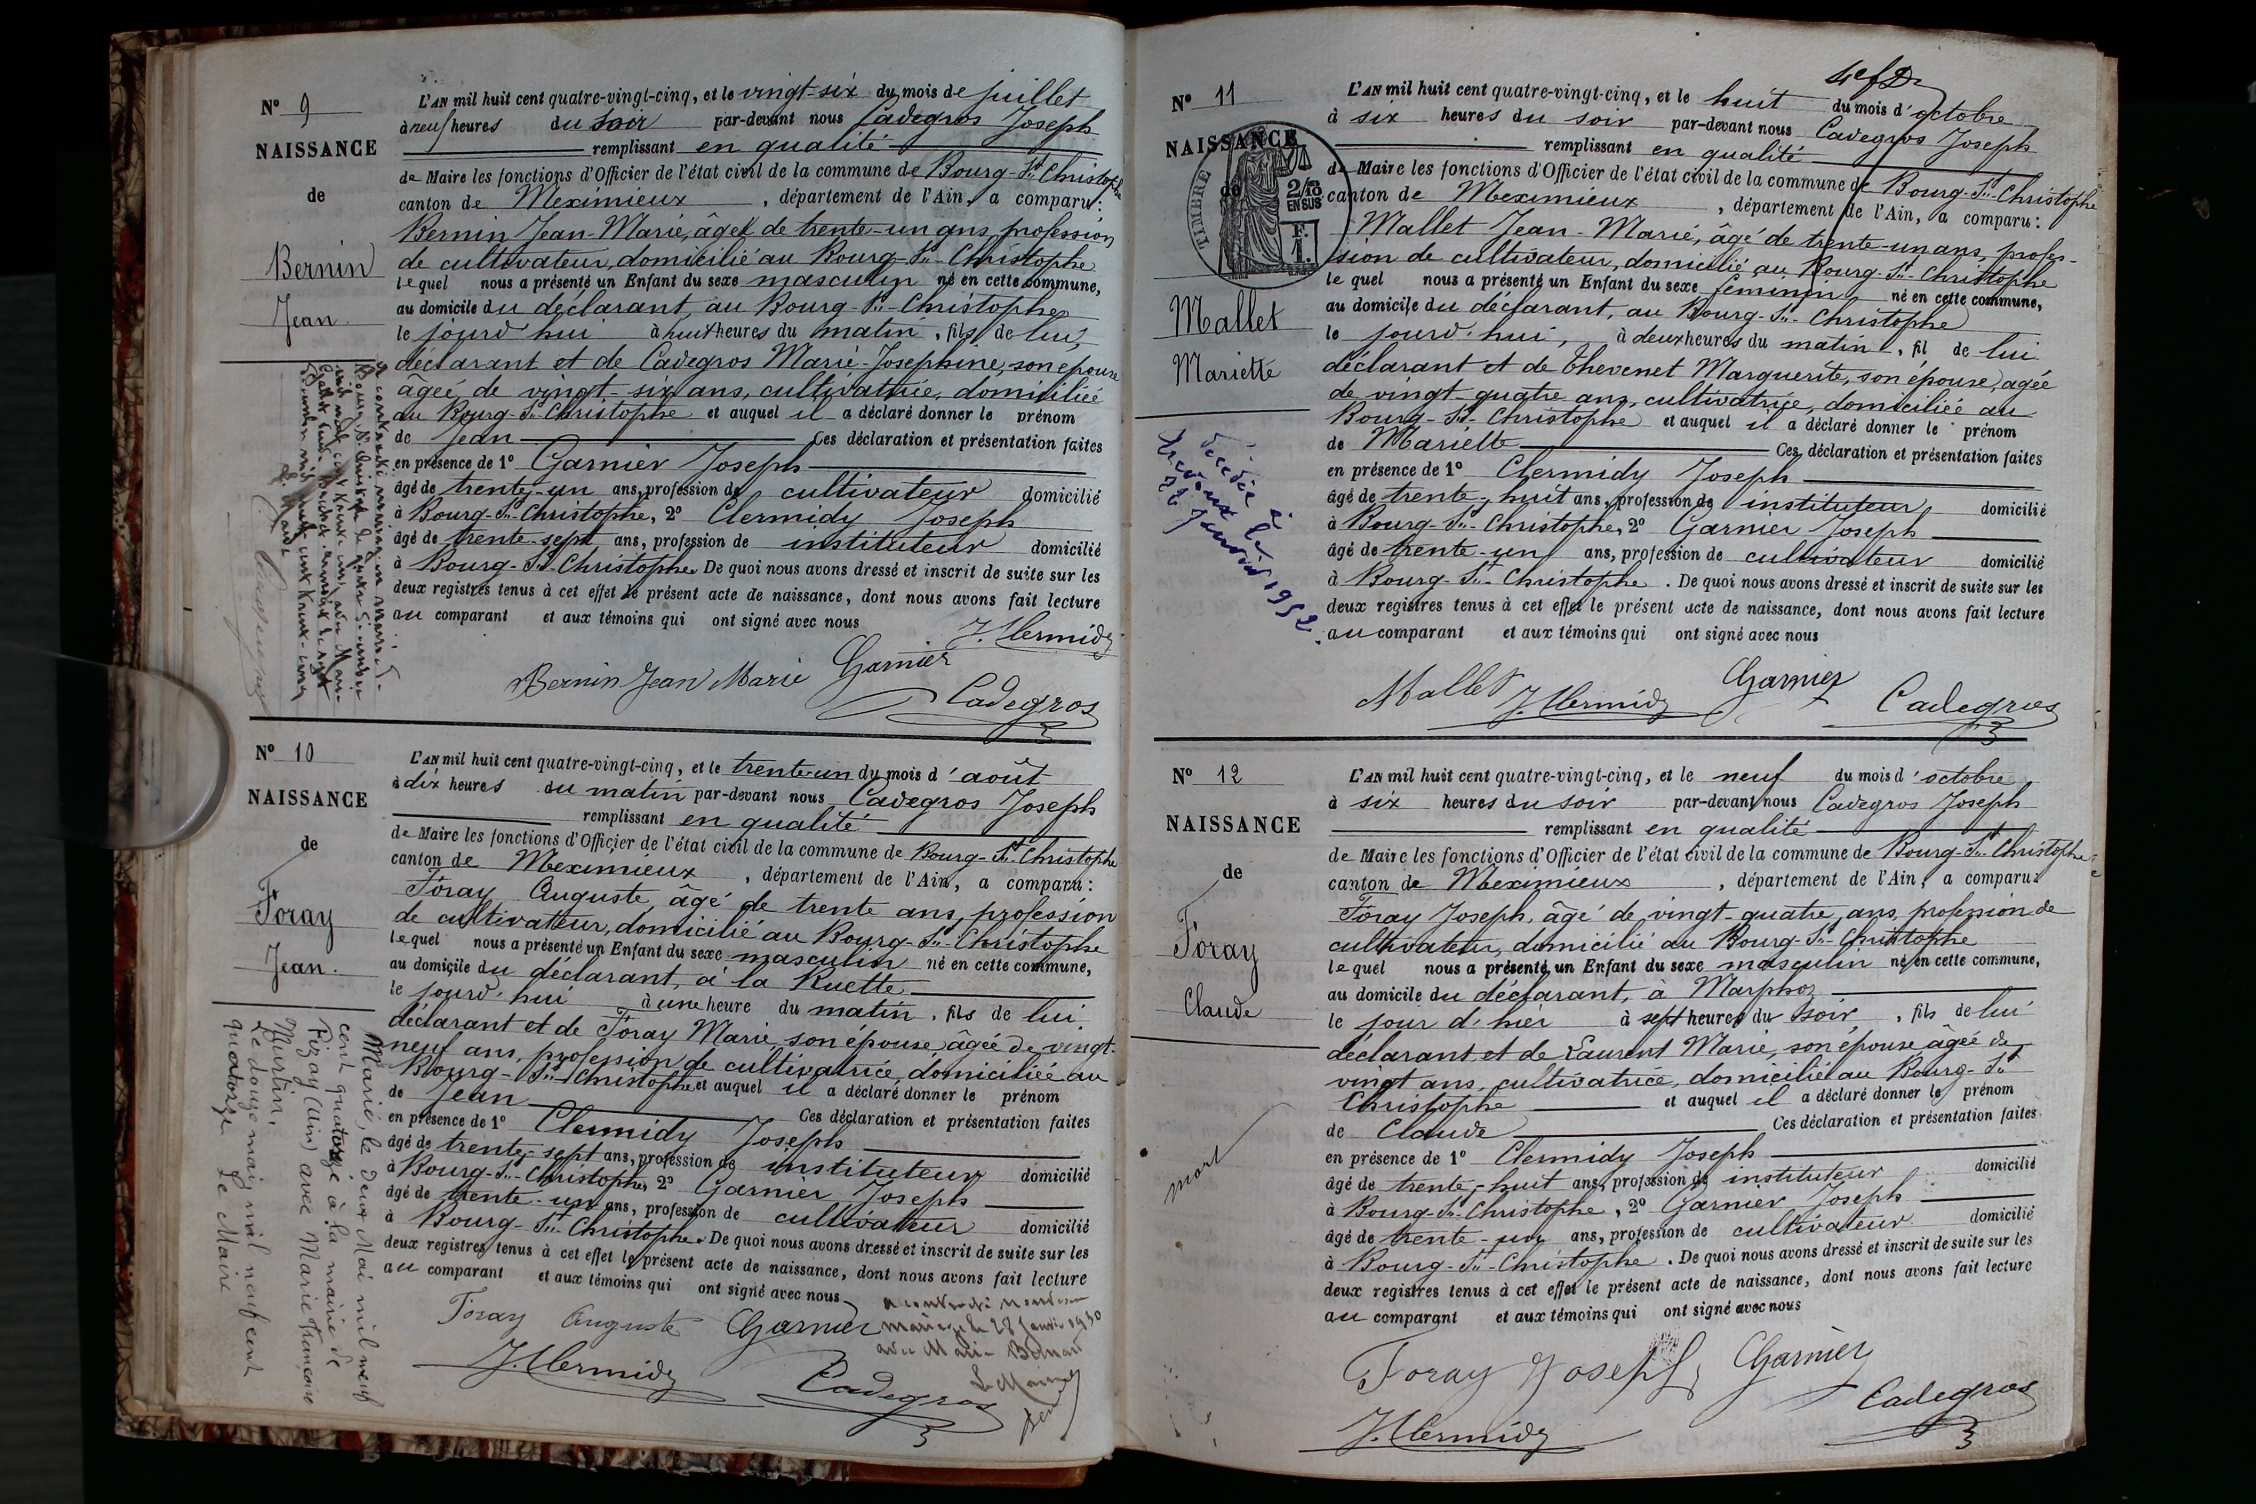 Nº 9
NAISSANCE
de
Bernin
Jean
L'AN mil huit cent quatre-vingt-cinq, et le vingt-six du mois de juillet
à neuf heures du soir par-devant nous Cadegros Joseph
remplissant en qualité
de Maire les fonctions d'Officier de l'état civil de la commune de Bourg-St-Christophe
canton de Meximieux, département de l'Ain, a comparu:
Bernin Jean-Marie, âgé de trente-un ans, profession
de cultivateur, domicilié au Bourg-St-Christophe
lequel nous a présenté un Enfant du sexe masculin né en cette commune,
au domicile du déclarant, au Bourg-St-Christophe
le jourd'hui à huit heures du matin, fils de lui,
déclarant et de Cadegros Marie-Josephine, son épouse
âgée de vingt-six ans, cultivatrice, domiciliée
au Bourg-St-Christophe et auquel il a déclaré donner le prénom
de Jean Ces déclaration et présentation faites
en présence de 1º Garnier Joseph
âgé de trente-un ans, profession de cultivateur domicilié
à Bourg-St-Christophe, 2º Clermidy Joseph
âgé de trente-sept ans, profession de instituteur domicilié
à Bourg-St-Christophe. De quoi nous avons dressé et inscrit de suite sur les
deux registres tenus à cet effet le présent acte de naissance, dont nous avons fait lecture
au comparant et aux témoins qui ont signé avec nous
J. Clermidy
Bernin Jean Marie Garnier
Cadegros
Nº 10
NAISSANCE
de
Foray
Jean.
Marié, le deux Mai mil neuf
cent quatorze à la mairie de
Pizay (Ain) avec Marie Françoise
Murtin.
Le douze mai mil neuf cent
quatorze Le Maire
L'AN mil huit cent quatre-vingt-cinq, et le trente-un du mois d'août
à dix heures du matin par-devant nous Cadegros Joseph
remplissant en qualité
de Maire les fonctions d'Officier de l'état civil de la commune de Bourg-St-Christophe
canton de Meximieux, département de l'Ain, a comparu:
Foray Auguste, âgé de trente ans, profession
de cultivateur, domicilié au Bourg-St-Christophe
lequel nous a présenté un Enfant du sexe masculin né en cette commune,
au domicile du déclarant, à la Ruette
le jourd'hui à une heure du matin, fils de lui
déclarant et de Foray Marie, son épouse âgée de vingt-
neuf ans, profession de cultivatrice, domiciliée au
Bourg-St-Christophe et auquel il a déclaré donner le prénom
de Jean Ces déclaration et présentation faites
en présence de 1º Clermidy Joseph
âgé de trente-sept ans, profession de instituteur domicilié
à Bourg-St-Christophe, 2º Garnier Joseph
âgé de trente-un ans, profession de cultivateur domicilié
à Bourg-St-Christophe. De quoi nous avons dressé et inscrit de suite sur les
deux registres tenus à cet effet le présent acte de naissance, dont nous avons fait lecture
au comparant et aux témoins qui ont signé avec nous
Foray Auguste Garnier
J. Clermidy Cadegros
mariage le 28 1930
avec Marie
Le Maire
Nº 11
NAISSANCE
de
TIMBRE
2/10
EN SUS
F.
1.
Mallet
Mariette
Décédée à
le
22 Janvier 1952.
L'AN mil huit cent quatre-vingt-cinq, et le huit du mois d'octobre
à six heures du soir par-devant nous Cadegros Joseph
remplissant en qualité
de Maire les fonctions d'Officier de l'état civil de la commune de Bourg-St-Christophe
canton de Meximieux, département de l'Ain, a comparu:
Mallet Jean-Marie, âgé de trente-un ans, profes-
sion de cultivateur, domicilié au Bourg-St-Christophe
le quel nous a présenté un Enfant du sexe féminin né en cette commune,
au domicile du déclarant, au Bourg-St-Christophe
le jourd'hui, à deux heures du matin, fil de lui
déclarant et de Thevenet Marguerite, son épouse, agée
de vingt-quatre ans, cultivatrice, domiciliée au
Bourg-St-Christophe et auquel il a déclaré donner le prénom
de Mariette Ces déclaration et présentation faites
en présence de 1º Clermidy Joseph
âgé de trente-huit ans, profession de instituteur domicilié
à Bourg-St-Christophe, 2º Garnier Joseph
âgé de trente-un ans, profession de cultivateur domicilié
à Bourg-St-Christophe. De quoi nous avons dressé et inscrit de suite sur les
deux registres tenus à cet effet le présent acte de naissance, dont nous avons fait lecture
au comparant et aux témoins qui ont signé avec nous
Mallet J. Clermidy Garnier Cadegros
Nº 12
NAISSANCE
de
Foray
Claude
mort
L'AN mil huit cent quatre-vingt-cinq, et le neuf du mois d'octobre
à six heures du soir par-devant nous Cadegros Joseph
remplissant en qualité
de Maire les fonctions d'Officier de l'état civil de la commune de Bourg-St-Christophe
canton de Meximieux, département de l'Ain, a comparu:
Foray Joseph, âgé de vingt-quatre ans, profession de
cultivateur, domicilié au Bourg-St-Christophe
lequel nous a présenté un Enfant du sexe masculin né en cette commune,
au domicile du déclarant, à Marphoz
le jour d'hier à sept heures du soir, fils de lui
déclarant et de Laurent Marie, son épouse âgée de
vingt ans, cultivatrice, domicilié au Bourg-St-
Christophe et auquel il a déclaré donner le prénom
de Claude Ces déclaration et présentation faites
en présence de 1º Clermidy Joseph
âgé de trente-huit ans, profession de instituteur domicilié
à Bourg-St-Christophe, 2º Garnier Joseph
âgé de trente-un ans, profession de cultivateur domicilié
à Bourg-St-Christophe. De quoi nous avons dressé et inscrit de suite sur les
deux registres tenus à cet effet le présent acte de naissance, dont nous avons fait lecture
au comparant et aux témoins qui ont signé avec nous
Foray Joseph Garnier
J. Clermidy Cadegros